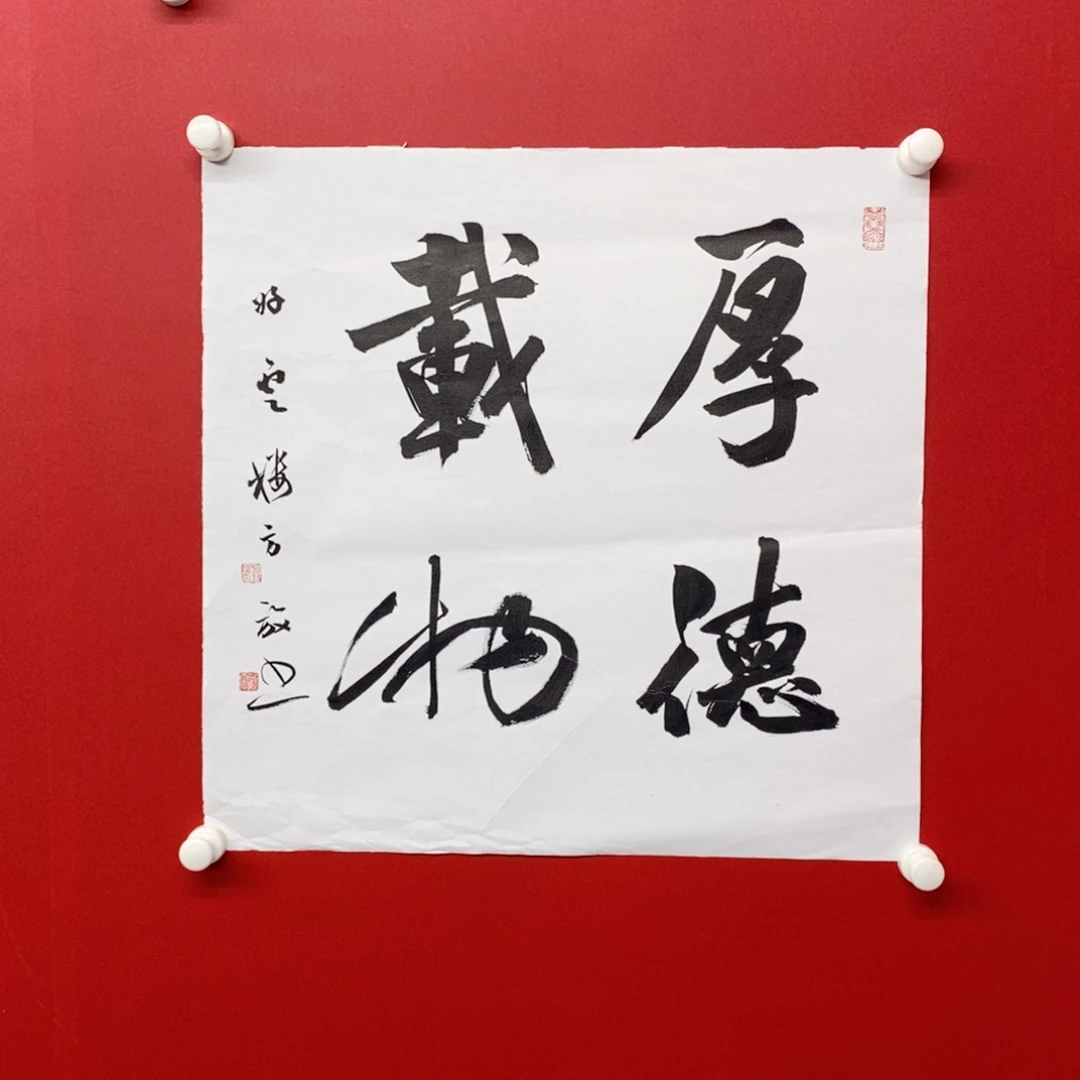 厚德
載物
好雲樓方放書